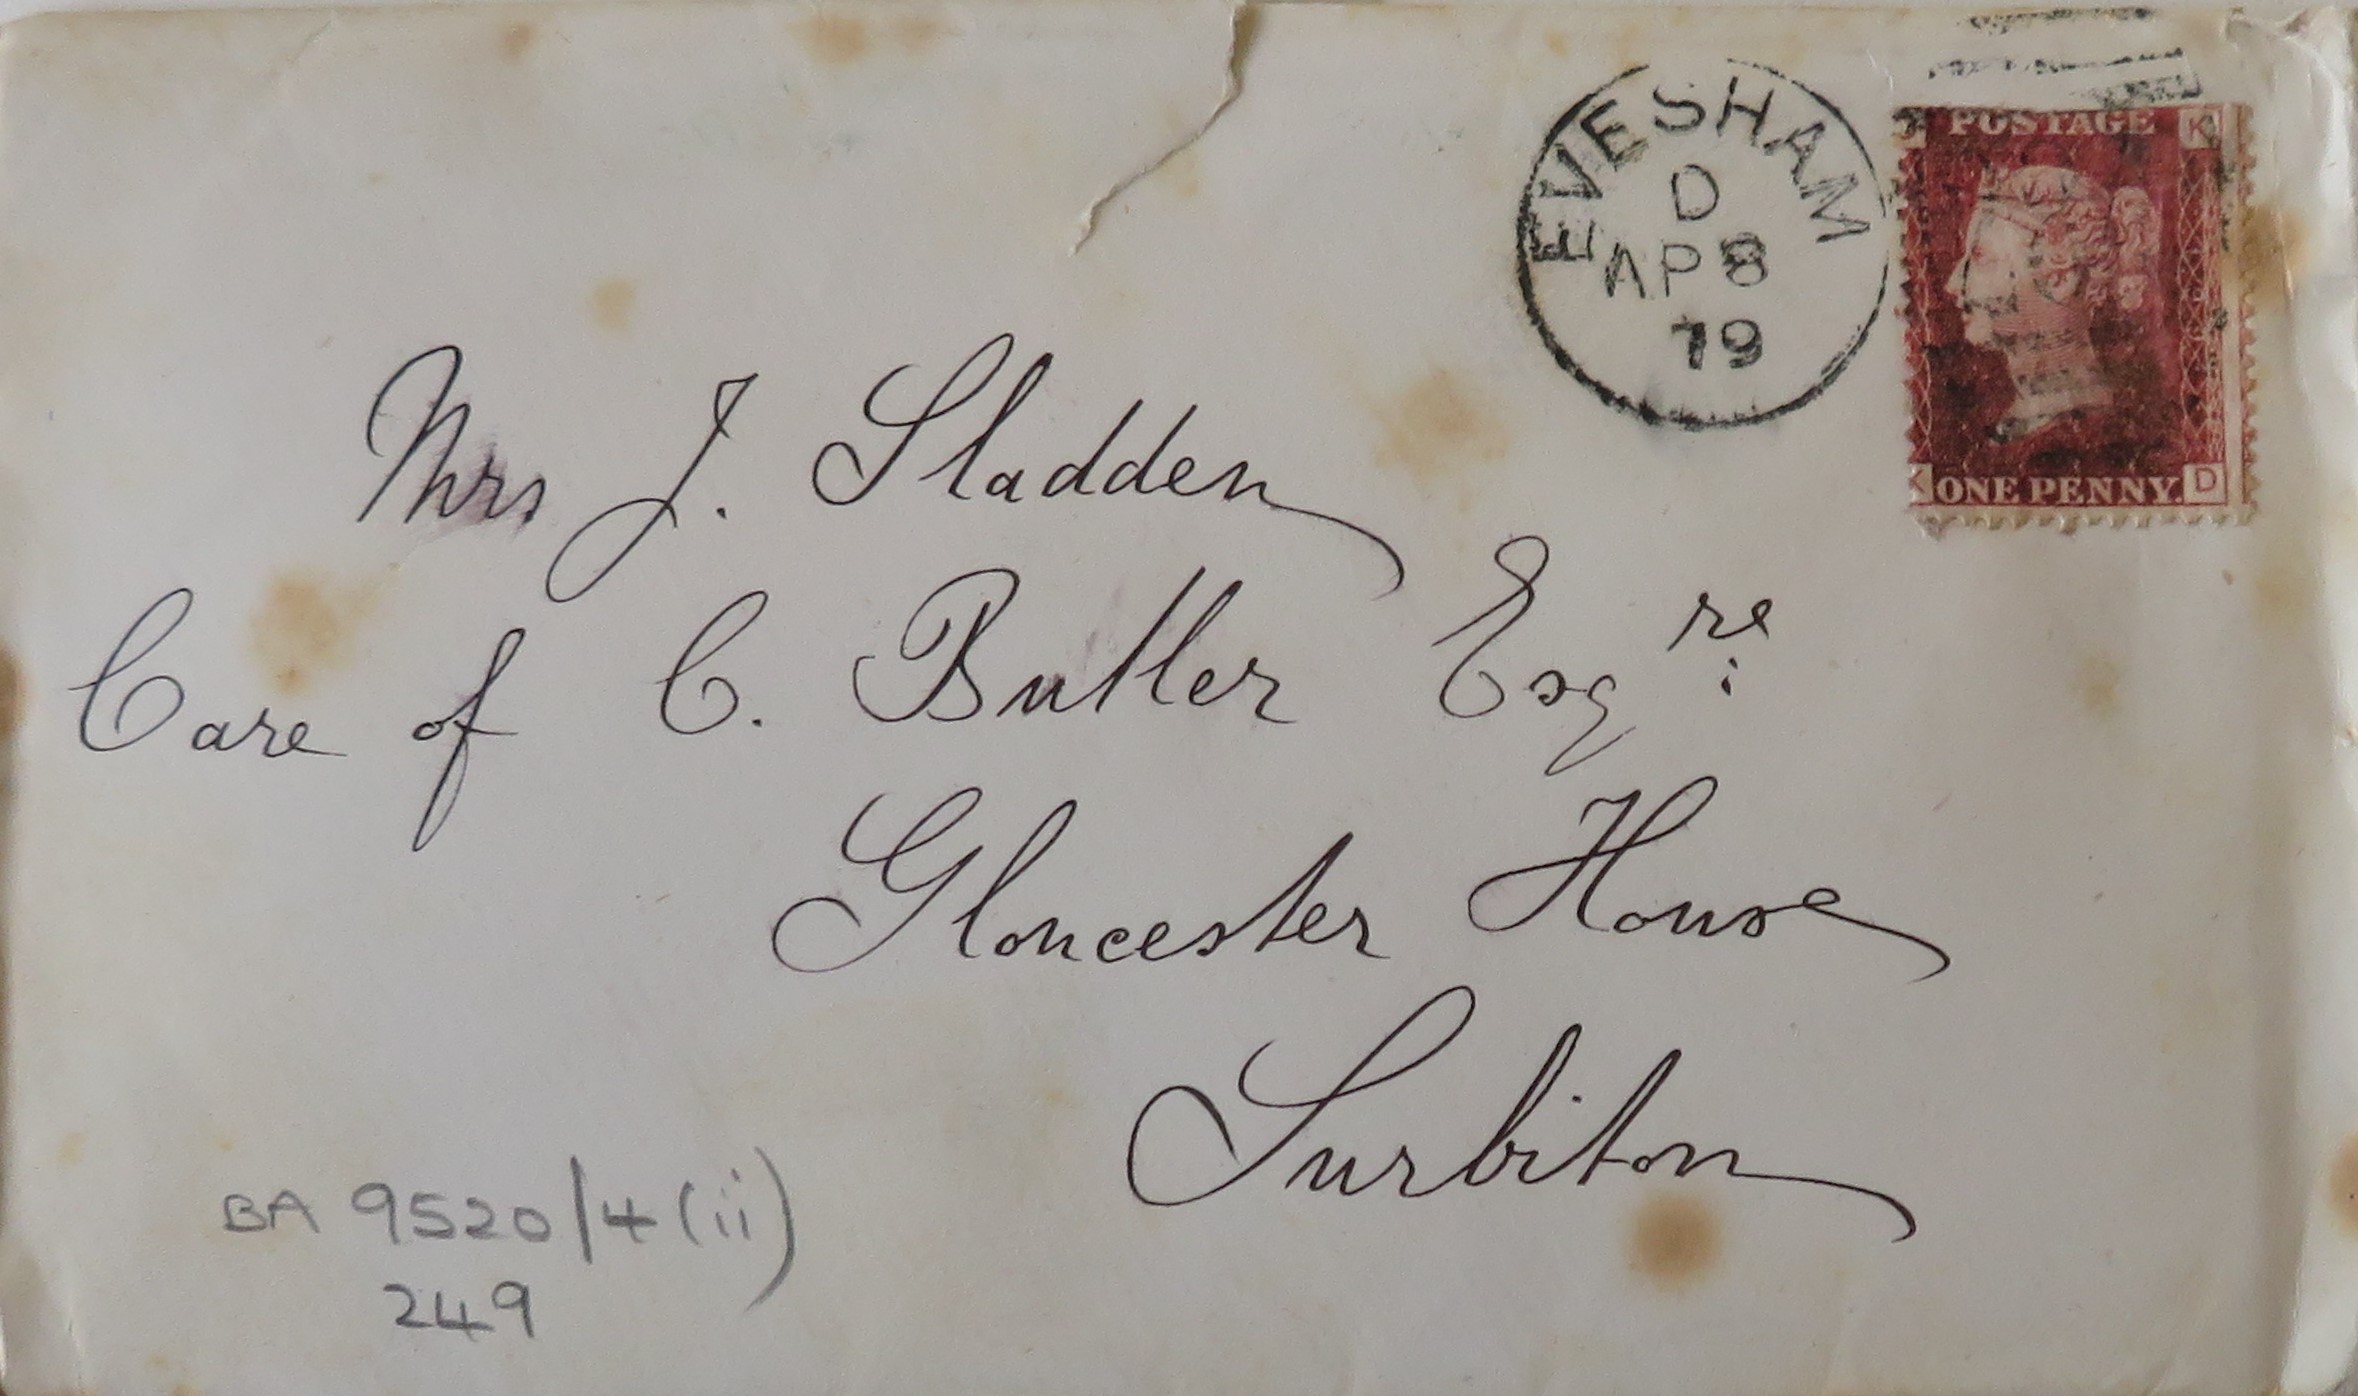 EVESHAM
D
AP 8
79
POSTAGE K
K ONE PENNY. D
Mrs J. Sladden
Care of C. Butler Esqre:
Gloucester House
Surbiton
BA 9520/4(ii)
249